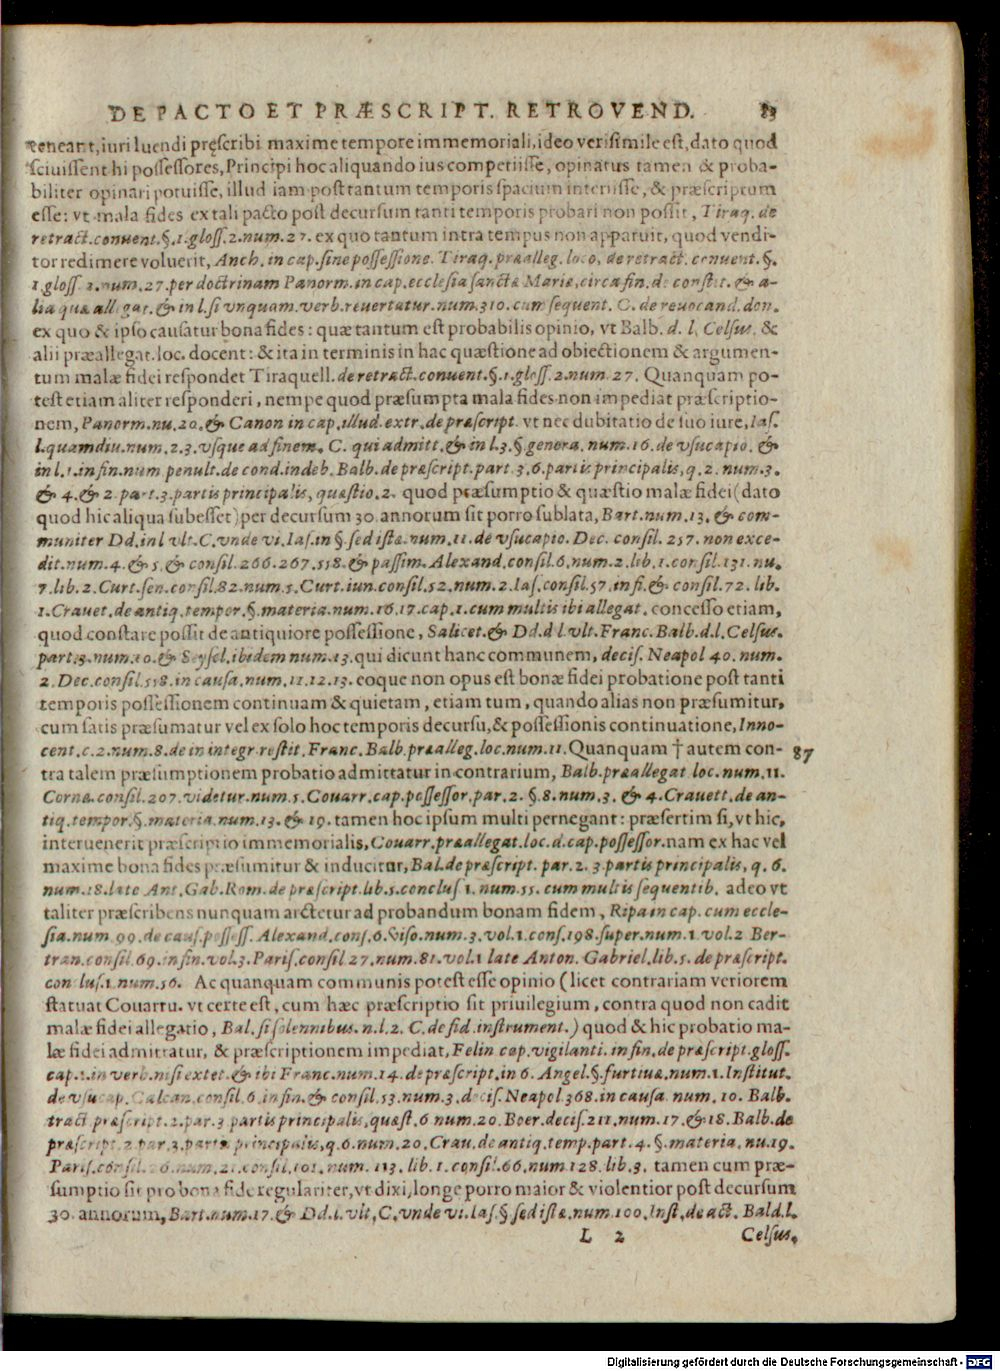 DE PACTO ET PRÆSCRIPT. RETROVEND. 83
teneant, iuri luendi pręscribi maxime tempore immemoriali, ideo verisimile est, dato quod
sciuissent hi possessores, Principi hoc aliquando ius competiisse, opinatus tamen & proba-
biliter opinari potuisse, illud iam post tantum temporis spacium interiisse, & præscriptum
esse: vt mala fides ex tali pacto post decursum tanti temporis probari non possit, Tiraq. de
retract. conuent. §. 1. gloss. 2. num. 27. ex quo tantum intra tempus non apparuit, quod vendi-
tor redimere voluerit, Anch. in cap. sine possessione. Tiraq. præalleg. loco, de retract. conuent. §.
1. gloss. 2. num. 27. per doctrinam Panorm. in cap. ecclesia sanctæ Mariæ, circa fin. de constit. & a-
lia quæ allegat. & in l. si vnquam. verb. reuertatur. num. 310. cum sequent. C. de reuocand. don.
ex quo & ipso causatur bona fides: quæ tantum est probabilis opinio, vt Balb. d. l. Celsus. &
alii præallegat. loc. docent: & ita in terminis in hac quæstione ad obiectionem & argumen-
tum malæ fidei respondet Tiraquell. de retract. conuent. §. 1. gloss. 2. num. 27. Quanquam po-
test etiam aliter responderi, nempe quod præsumpta mala fides non impediat præscriptio-
nem, Panorm. nu. 20. & Canon in cap. illud. extr. de præscript. vt nec dubitatio de suo iure, Ias.
l. quamdiu. num. 2. 3. vsque ad finem. C. qui admitt. & in l. 3. §. genera. num. 16. de vsucapio. &
in l. 1. in fin. num penult. de cond. indeb. Balb. de præscript. part. 3. 6. partis principalis, q. 2. num. 3.
& 4. & 2. part. 3. partis principalis, quæstio. 2. quod præsumptio & quæstio malæ fidei (dato
quod hic aliqua subesset) per decursum 30. annorum sit porro sublata, Bart. num. 13. & com-
muniter Dd. in l vlt. C. vnde vi. Ias. in §. sed istæ. num. 11. de vsucapio. Dec. consil. 257. non exce-
dit. num. 4. & 5. & consil. 266. 267. 558. & passim. Alexand. consil. 6. num. 2. lib. 1. consil. 131. nu.
7. lib. 2. Curt. sen. consil. 82. num. 5. Curt. iun. consil. 52. num. 2. Ias. consil. 57. in fi. & consil. 72. lib.
1. Crauet. de antiq. tempor. §. materia. num. 16. 17. cap. 1. cum multis ibi allegat. concesso etiam,
quod constare possit de antiquiore possessione, Salicet. & Dd. d l. vlt. Franc. Balb. d. l. Celsus.
part. 3. num. 10. & Seyssel. ibidem num. 13. qui dicunt hanc communem, decis. Neapol 40. num.
2. Dec. consil. 558. in causa. num. 11. 12. 13. eoque non opus est bonæ fidei probatione post tanti
temporis possessionem continuam & quietam, etiam tum, quando alias non præsumitur,
cum satis præsumatur vel ex solo hoc temporis decursu, & possessionis continuatione, Inno-
cent. c. 2. num. 8. de in integr. restit. Franc. Balb. præalleg. loc. num. 11. Quanquam † autem con- 87
tra talem præsumptionem probatio admittatur in contrarium, Balb. præallegat loc. num. 11.
Cornæ. consil. 207. videtur. num. 5. Couarr. cap. possessor. par. 2. §. 8. num. 3. & 4. Crauett. de an-
tiq. tempor. §. materia. num. 13. & 19. tamen hoc ipsum multi pernegant: præsertim si, vt hic,
interuenerit præscriptio immemorialis, Couarr. præallegat. loc. d. cap. possessor. nam ex hac vel
maxime bona fides præsumitur & inducitur, Bal. de præscript. par. 2. 3. partis principalis, q. 6.
num. 18. late Ant. Gab. Rom. de præscript. lib. 5. conclus 1. num. 55. cum multis sequentib. adeo vt
taliter præscribens nunquam arctetur ad probandum bonam fidem, Ripa in cap. cum eccle-
sia. num 99. de caus. possess. Alexand. cons. 6. viso. num. 3. vol. 1. cons. 198. super. num. 1. vol. 2 Ber-
tran. consil. 69. in fin. vol. 3. Paris. consil 27. num. 81. vol. 1 late Anton. Gabriel. lib. 5. de præscript.
conclus. 1. num. 56. Ac quanquam communis potest esse opinio (licet contrariam veriorem
statuat Couarru. vt certe est, cum hæc præscriptio sit priuilegium, contra quod non cadit
malæ fidei allegatio, Bal. si solennibus. n. l. 2. C. de fid. instrument.) quod & hic probatio ma-
læ fidei admittatur, & præscriptionem impediat, Felin cap. vigilanti. in fin. de præscript. gloss.
cap. 1. in verb. nisi extet. & ibi Franc. num. 14. de præscript. in 6. Angel. §. furtiuæ. num. 1. Institut.
de vsucap. Calcan. consil. 6. in fin. & consil. 53. num. 3. decis. Neapol 368. in causa. num. 10. Balb.
tract præscript. 2. par. 3 partis principalis, quæst. 6 num. 20. Boer. decis. 211. num. 17. & 18. Balb. de
præscript. 2 par. 3. partis principalis, q. 6. num. 20. Crau. de antiq. temp. part. 4. §. materia. nu. 19.
Paris. consil. 26. num. 21. consil. 101. num. 113. lib. 1. consil. 66. num. 128. lib. 3. tamen cum præ-
sumptio sit pro bona fide regulariter, vt dixi, longe porro maior & violentior post decursum
30. annorum, Bart. num. 17. & Dd. l. vlt. C. vnde vi. Ias. §. sed istæ. num. 100. Inst. de act. Bald. l.
L 2 Celsus,
Digitalisierung gefördert durch die Deutsche Forschungsgemeinschaft - DFG